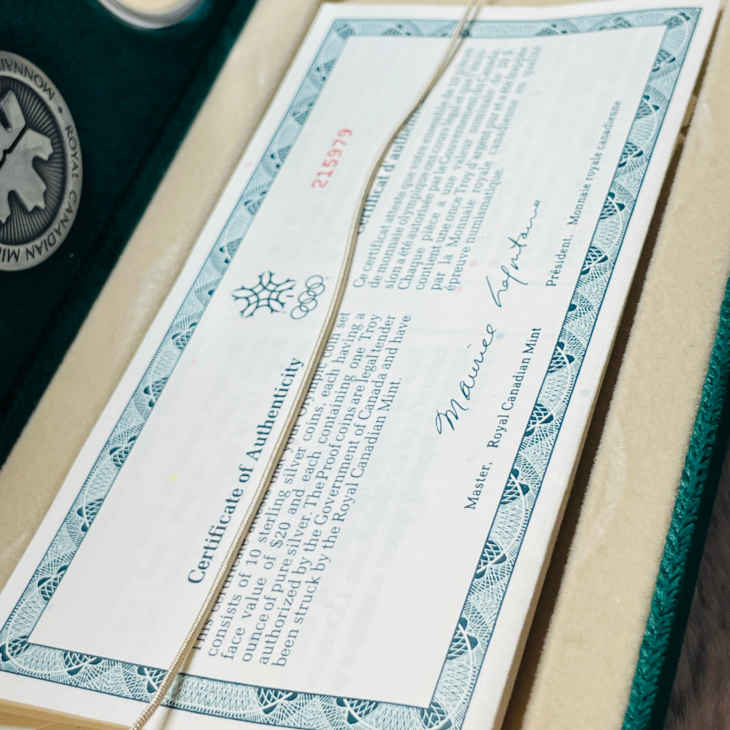 MONNAIE
ROYAL CANADIAN MI
215979
Certificate of Authenticity
consists of 10 sterling silver coins, each having a
face value of $20 and each containing one Troy
ounce of pure silver. The Proof coins are legal tender
authorized by the Government of Canada and have
been struck by the Royal Canadian Mint.
Maurice Lafontaine
Master, Royal Canadian Mint
Ce certificat atteste que
de monnaie olympique
sion a été autorisée par le Gouvernement
Chaque pièce a une valeur nominale de 20 $
contient une once troy d'argent pur et a été frappée
par la Monnaie royale canadienne en qualité
épreuve numismatique.
Président, Monnaie royale canadienne